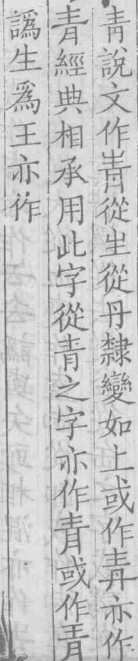 靑說文作靑從生從丹隸變如上或作靑亦作
青經典相承用此字從青之字亦作青或作青
譌生爲王亦作